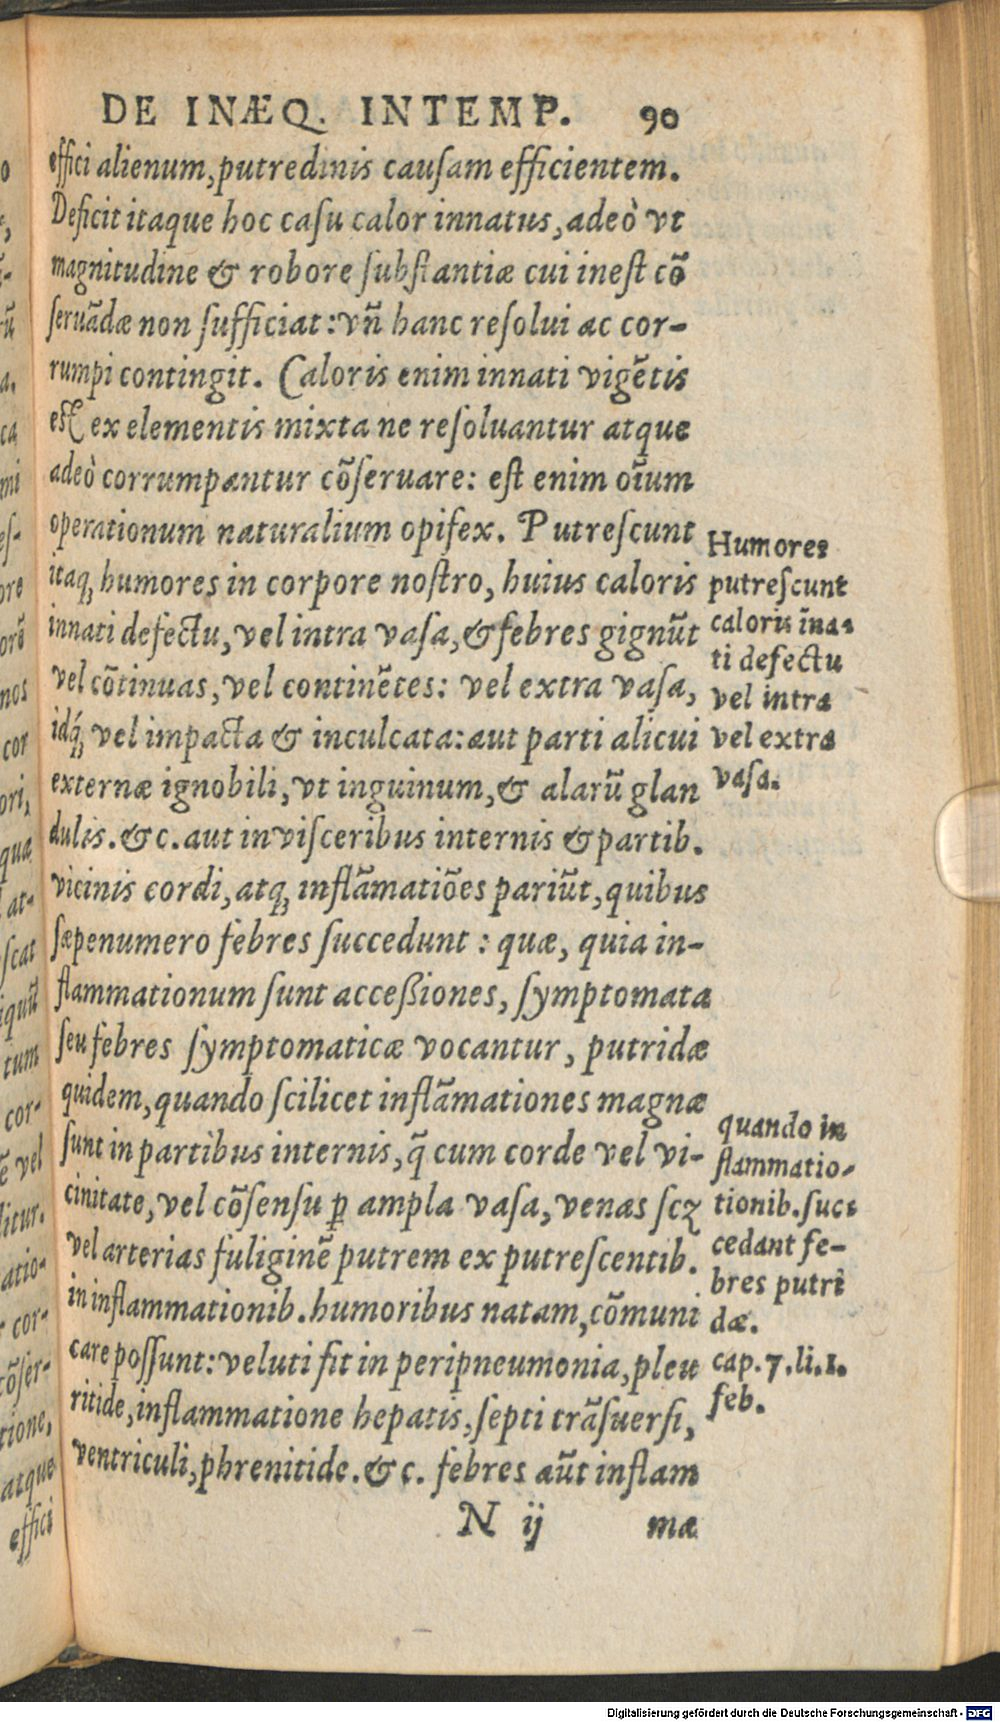 DE INÆQ. INTEMP. 90
effici alienum, putredinis causam efficientem.
Deficit itaque hoc casu calor innatus, adeò vt
magnitudine & robore substantiæ cui inest cõ
seruãdæ non sufficiat: vñ hanc resolui ac cor-
rumpi contingit. Caloris enim innati vigẽtis
est ex elementis mixta ne resoluantur atque
adeò corrumpantur cõseruare: est enim oĩum
operationum naturalium opifex. Putrescunt
itaq; humores in corpore nostro, huius caloris
innati defectu, vel intra vasa, & febres gignũt
vel cõtinuas, vel continẽtes: vel extra vasa,
idq́; vel impacta & inculcata: aut parti alicui
externæ ignobili, vt inguinum, & alarũ glan
dulis. &c. aut in visceribus internis & partib.
vicinis cordi, atq; inflãmatiões pariũt, quibus
sæpenumero febres succedunt: quæ, quia in-
flammationum sunt accessiones, symptomata
seu febres symptomaticæ vocantur, putridæ
quidem, quando scilicet inflãmationes magnæ
sunt in partibus internis, q̃ cum corde vel vi-
cinitate, vel cõsensu ꝑ ampla vasa, venas scꝫ
vel arterias fuliginẽ putrem ex putrescentib.
in inflammationib. humoribus natam, cõmuni
care possunt: veluti fit in peripneumonia, pleu
ritide, inflammatione hepatis, septi trãsuersi,
ventriculi, phrenitide. &c. febres aũt inflam
N ij mæ
Humores
putrescunt
caloris ĩna-
ti defectu
vel intra
vel extra
vasa.
quando in
flammatio-
tionib. suc-
cedant fe-
bres putri
dæ.
cap. 7. li. 1.
feb.
effici
Digitalisierung gefördert durch die Deutsche Forschungsgemeinschaft - DFG